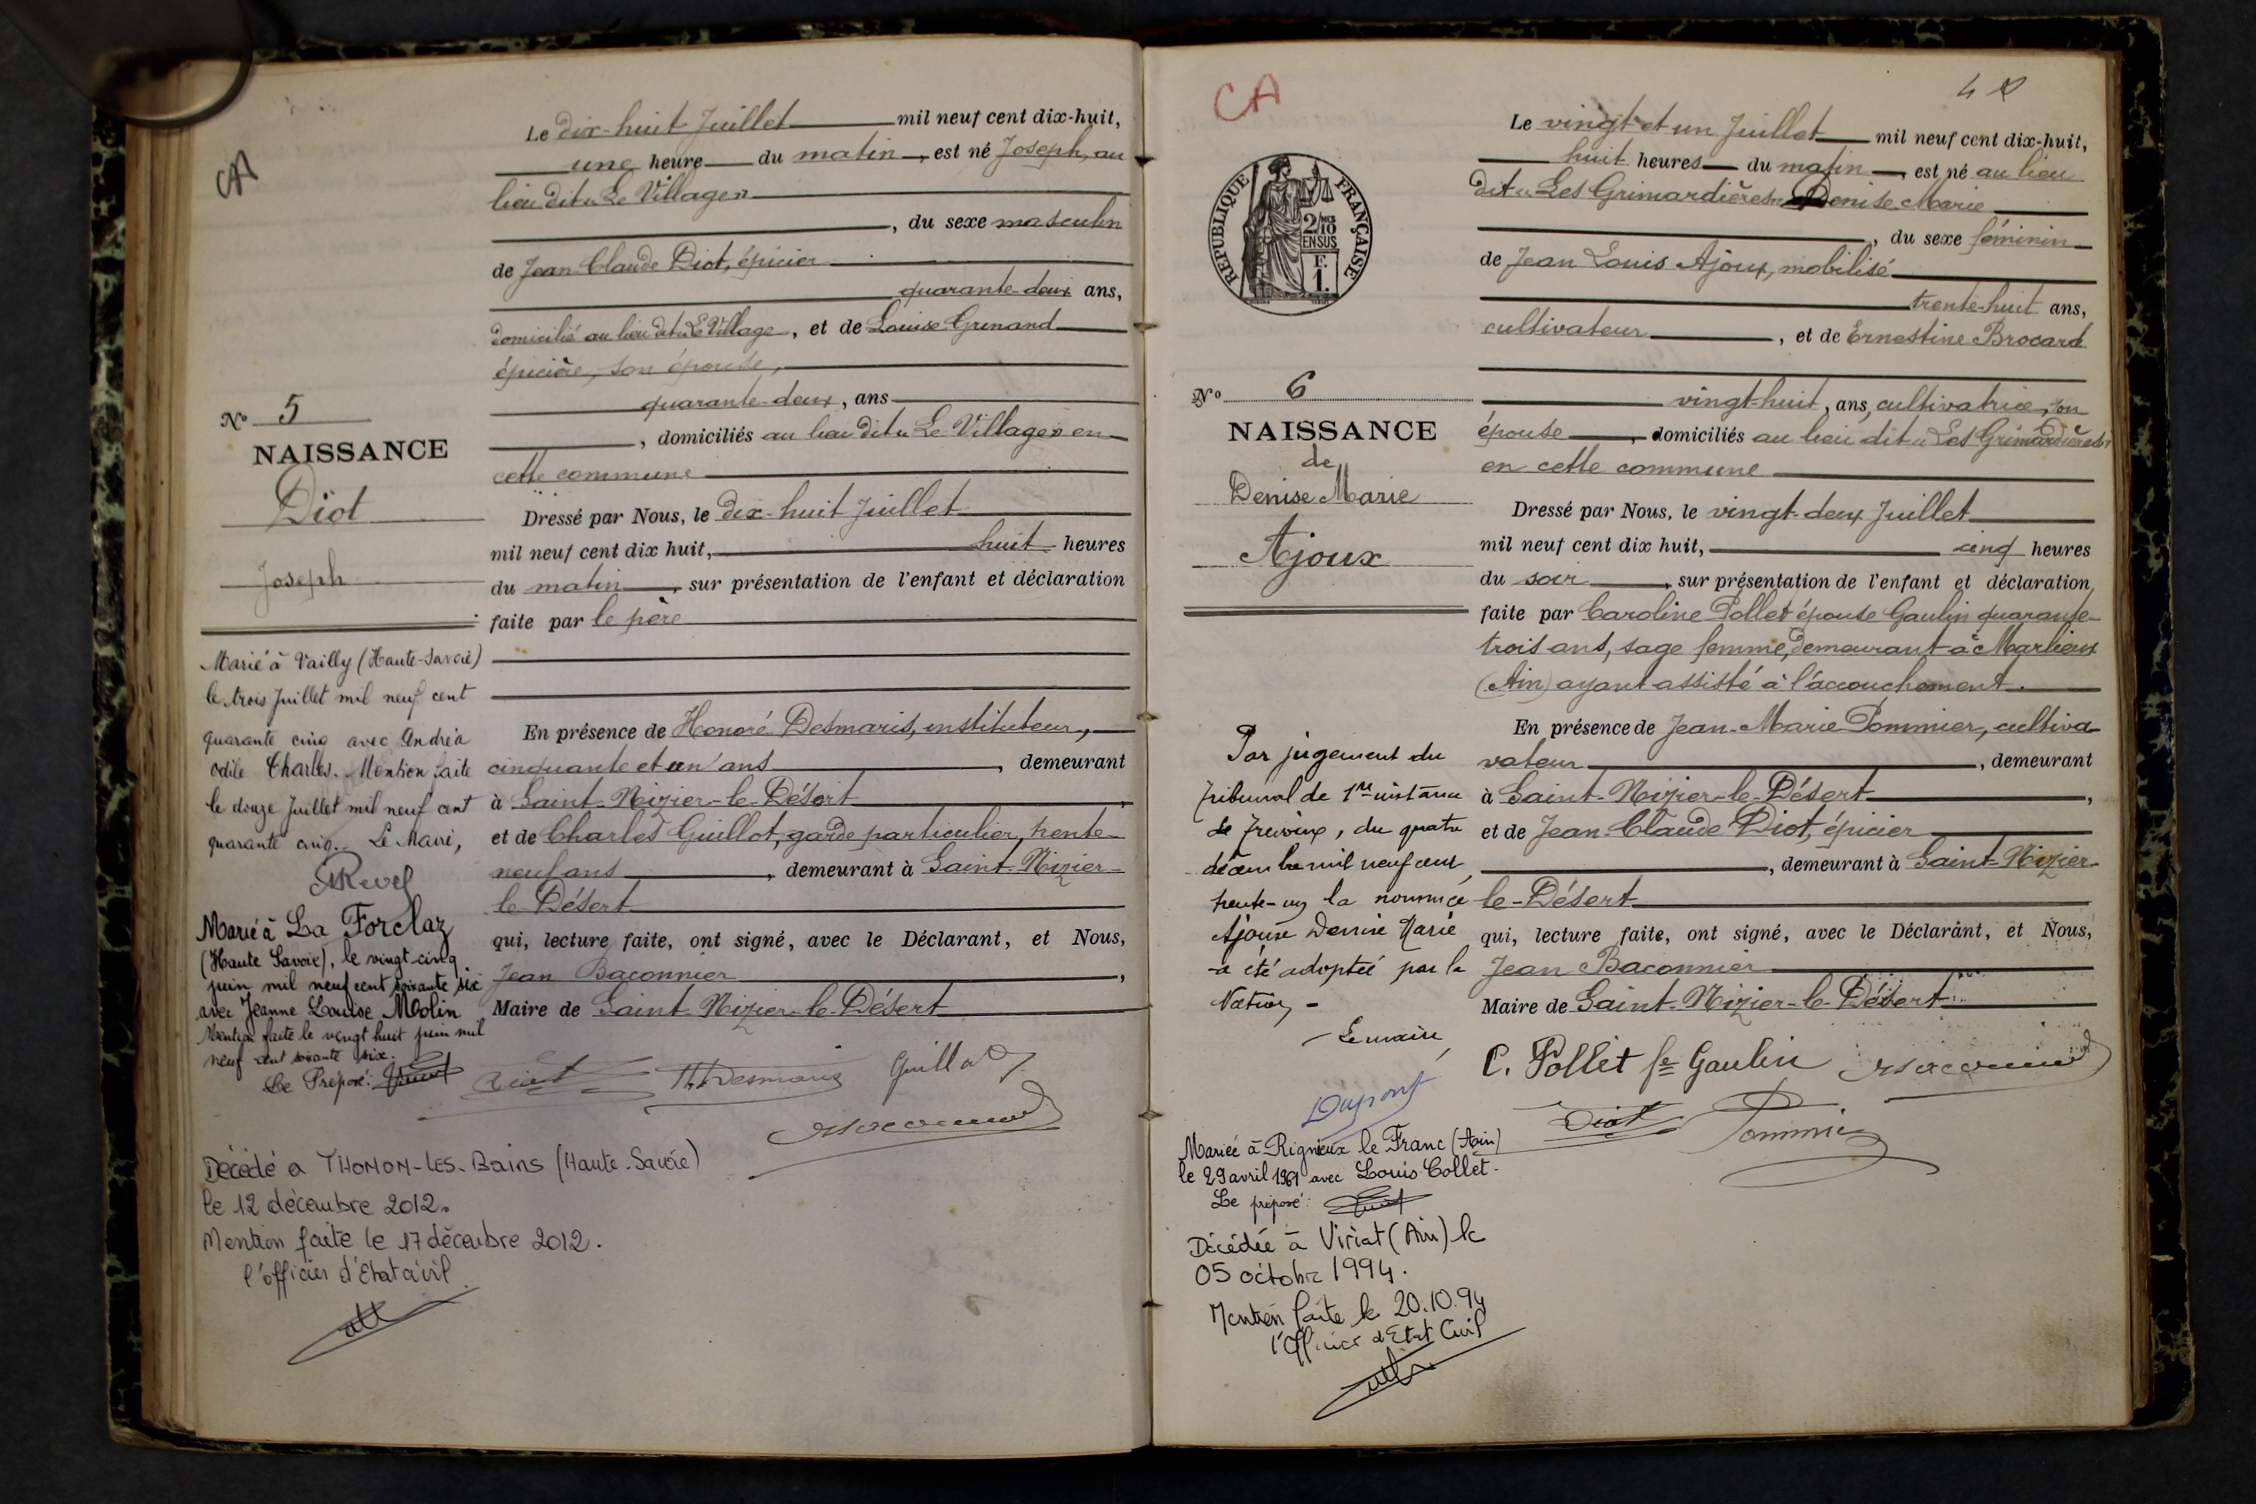 CA
Le dix-huit Juillet mil neuf cent dix-huit,
une heure du matin, est né Joseph, au
lieu dit « Le Village »
, du sexe masculin
de Jean Claude Diot, épicier
quarante-deux ans,
domicilié au lieu dit « Le Village, et de Louise Grenand
épicière, son épouse,
quarante-deux, ans
, domiciliés au lieu dit « Le Village » en
cette commune
Dressé par Nous, le dix-huit Juillet
mil neuf cent dix huit, huit heures
du matin, sur présentation de l'enfant et déclaration
faite par le père
En présence de Honoré Desmaris, instituteur,
cinquante et un ans, demeurant
à Saint-Nizier-le-Désert,
et de Charles Guillot, garde particulier, trente-
neuf ans, demeurant à Saint-Nizier-
le-Désert
qui, lecture faite, ont signé, avec le Déclarant, et Nous,
Jean Baconnier,
Maire de Saint-Nizier-le-Désert
Diot H. Desmaris Guillot
Baconnier
N° 5
NAISSANCE
Diot
Joseph
Marié à Vailly (Haute-Savoie)
le trois Juillet mil neuf cent
quarante cinq avec Andréa
Odile Charles. Mention faite
le douze Juillet mil neuf cent
quarante cinq. Le Maire,
Revel
Marié à La Forclaz
(Haute Savoie), le vingt-cinq
juin mil neuf cent soixante six
avec Jeanne Louise Molin
Mention faite le vingt huit juin mil
neuf cent soixante six.
Le Préposé:
Décédé à THONON-LES-Bains (Haute-Savoie)
le 12 décembre 2012.
Mention faite le 17 décembre 2012.
l'officier d'Etat civil
CA
4
RÉPUBLIQUE FRANÇAISE
2/10
EN SUS
F.
1.
Le vingt et un Juillet mil neuf cent dix-huit,
huit heures du matin, est né au lieu
dit « Les Grimardières » Denise Marie
, du sexe féminin
de Jean Louis Ajoux, mobilisé
trente-huit ans,
cultivateur, et de Ernestine Brocard
vingt-huit, ans, cultivatrice, son
épouse, domiciliés au lieu dit « Les Grimardières »
en cette commune
Dressé par Nous, le vingt-deux Juillet
mil neuf cent dix huit, cinq heures
du soir, sur présentation de l'enfant et déclaration
faite par Caroline Pollet épouse Gaulin quarante-
trois ans, sage femme, demeurant à Marlieux
(Ain) ayant assisté à l'accouchement.
En présence de Jean-Marie Pommier, cultiva-
vateur, demeurant
à Saint-Nizier-le-Désert,
et de Jean Claude Diot, épicier
, demeurant à Saint-Nizier-
le-Désert
qui, lecture faite, ont signé, avec le Déclarant, et Nous,
Jean Baconnier
Maire de Saint-Nizier-le-Désert
C. Pollet fe Gaulin Baconnier
Diot Pommier
N° 6
NAISSANCE
de
Denise Marie
Ajoux
Par jugement du
tribunal de 1re instance
de Trévoux, du quatre
décembre mil neuf cent
trente-un la nommée
Ajoux Denise Marie
a été adoptée par la
Nation -
Le maire,
Dupont
Mariée à Rignieux le Franc (Ain)
le 29 avril 1961 avec Louis Collet.
Le préposé:
Décédée à Viriat (Ain) le
05 octobre 1994.
Mention faite le 20.10.94
l'Officier d'Etat Civil